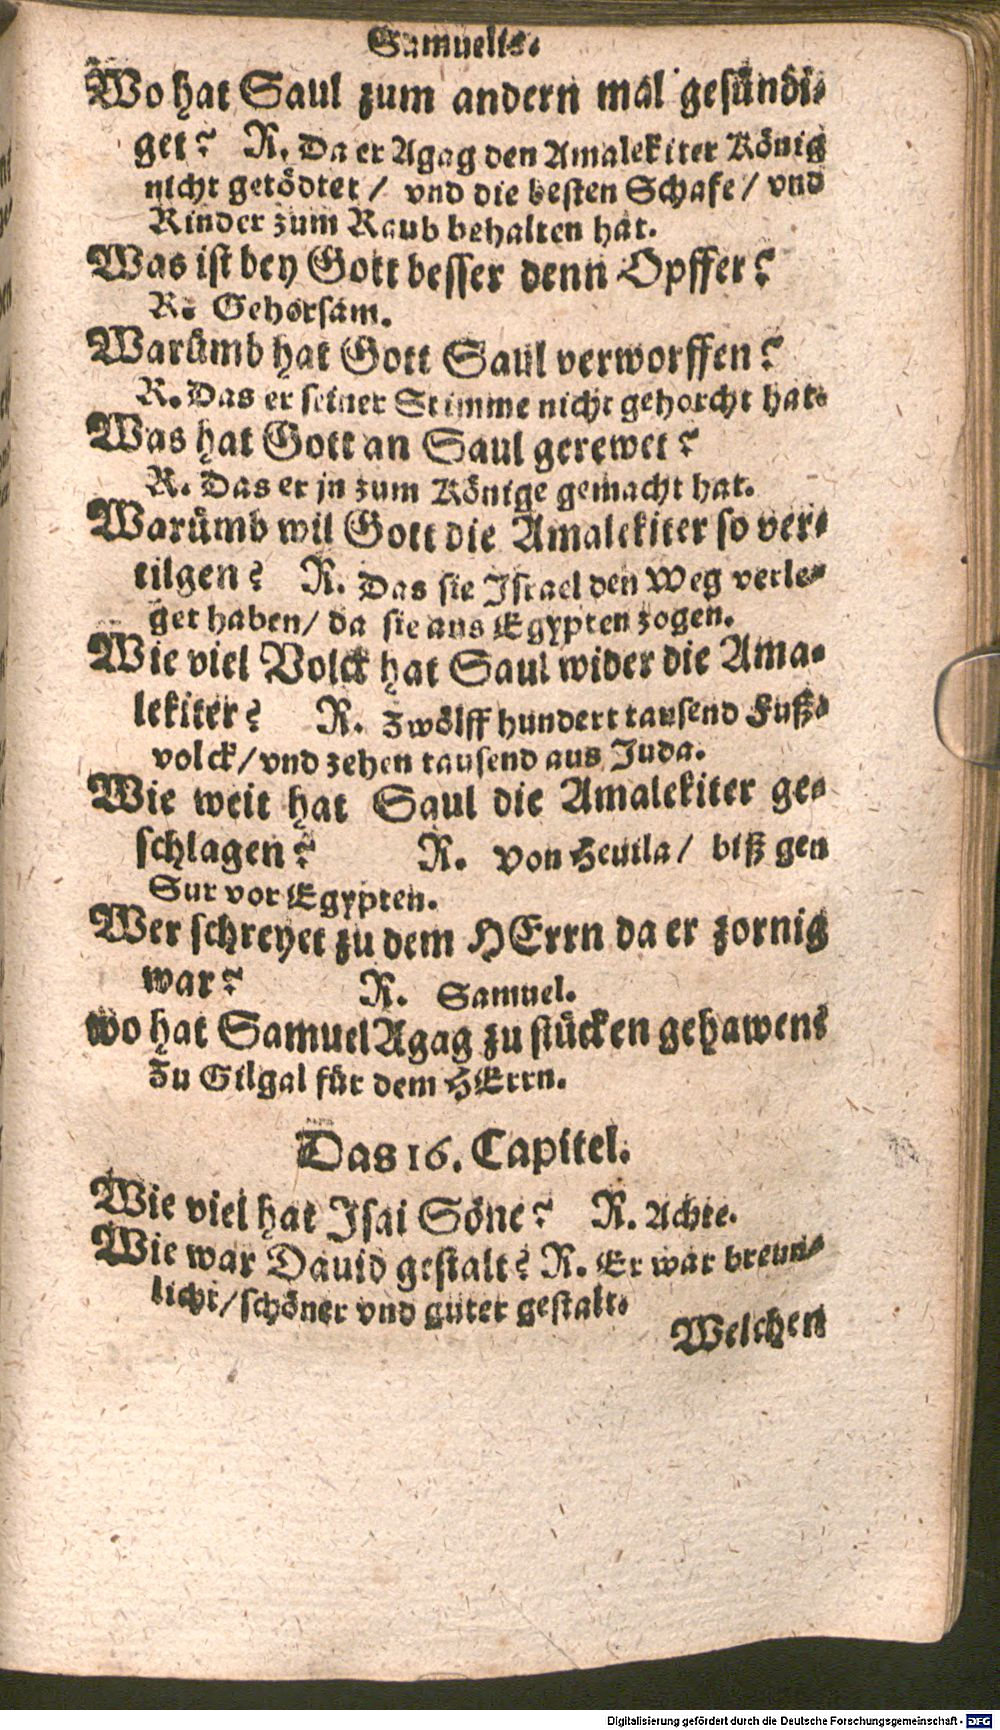 Samuelis.
Wo hat Saul zum andern mal gesündi-
get? R. Da er Agag den Amalekiter König
nicht getödtet / vnd die besten Schafe / vnd
Rinder zum Raub behalten hat.
Was ist bey Gott besser denn Opffer?
R. Gehorsam.
Warümb hat Gott Saul verworffen?
R. Das er seiner Stimme nicht gehorcht hat.
Was hat Gott an Saul gerewet?
R. Das er jn zum Könige gemacht hat.
Warümb wil Gott die Amalekiter so ver-
tilgen? R. Das sie Israel den Weg verle-
get haben / da sie aus Egypten zogen.
Wie viel Volck hat Saul wider die Ama-
lekiter? R. Zwölff hundert tausend Fuß-
volck / vnd zehen tausend aus Juda.
Wie weit hat Saul die Amalekiter ge-
schlagen? R. Von Heuila / biß gen
Sur vor Egypten.
Wer schreyet zu dem HErrn da er zornig
war? R. Samuel.
wo hat Samuel Agag zu stücken gehawens
Zu Gilgal für dem HErrn.
Das 16. Capitel.
Wie viel hat Isai Söne? R. Achte.
Wie war Dauid gestalt? R. Er war breun-
licht / schöner vnd guter gestalt.
Welchen
Digitalisierung gefördert durch die Deutsche Forschungsgemeinschaft - DFG